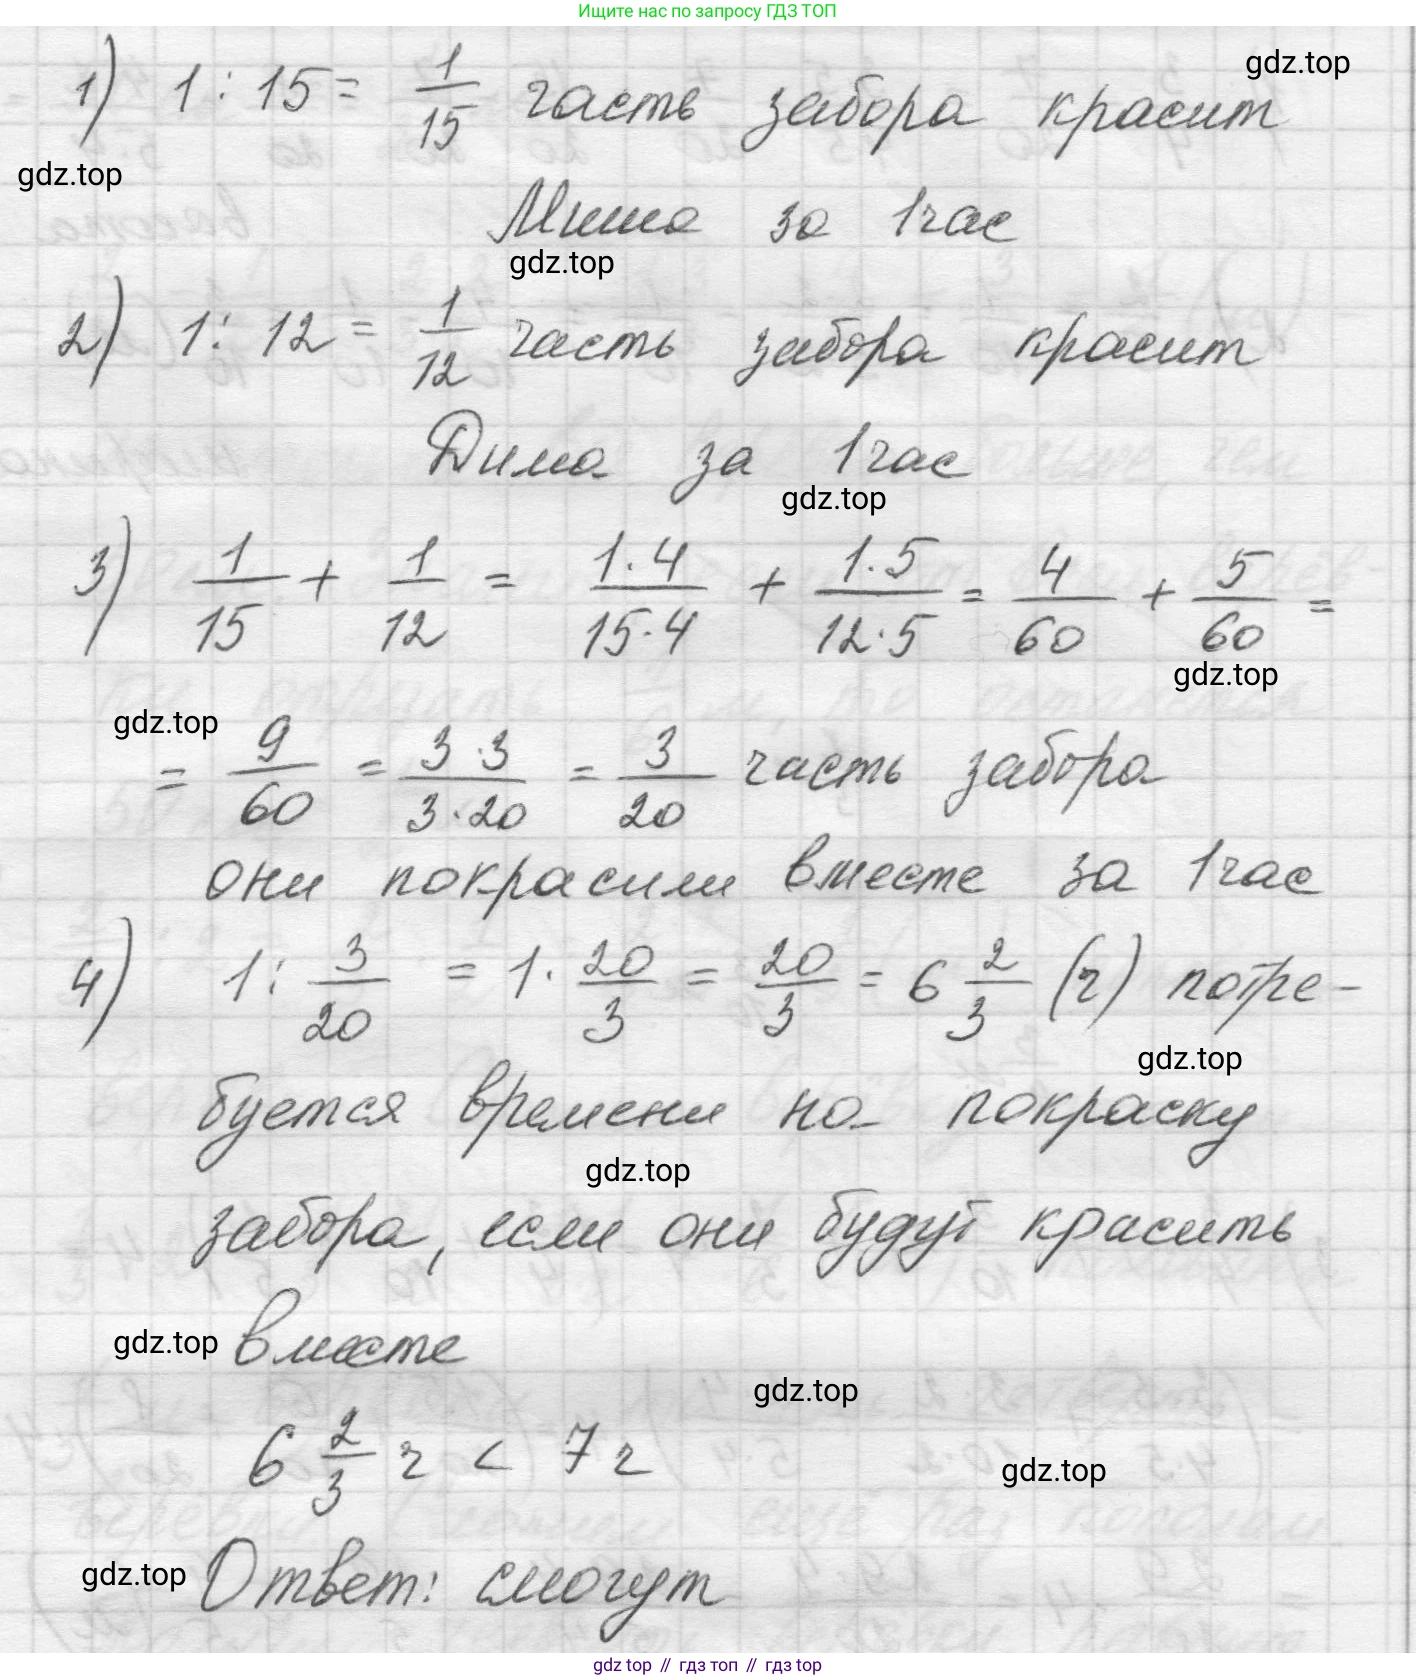 Ищите нас по запросу ГДЗ ТОП
1) 1 : 15 = 1/15 часть забора красит
gdz.top
gdz.top
Миша за 1 час
gdz.top
2) 1 : 12 = 1/12 часть забора красит
Дима за 1 час
gdz.top
3) 1/15 + 1/12 = 1·4/15·4 + 1·5/12·5 = 4/60 + 5/60 =
gdz.top
gdz.top
= 9/60 = 3·3/3·20 = 3/20 часть забора
они покрасили вместе за 1 час
4) 1 : 3/20 = 1 · 20/3 = 20/3 = 6 2/3 (ч) потре-
gdz.top
буется времени на покраску
gdz.top
забора, если они будут красить
gdz.top
вместе
gdz.top
6 2/3 ч < 7 ч
gdz.top
gdz.top
Ответ: смогут
gdz top // гдз топ // gdz top